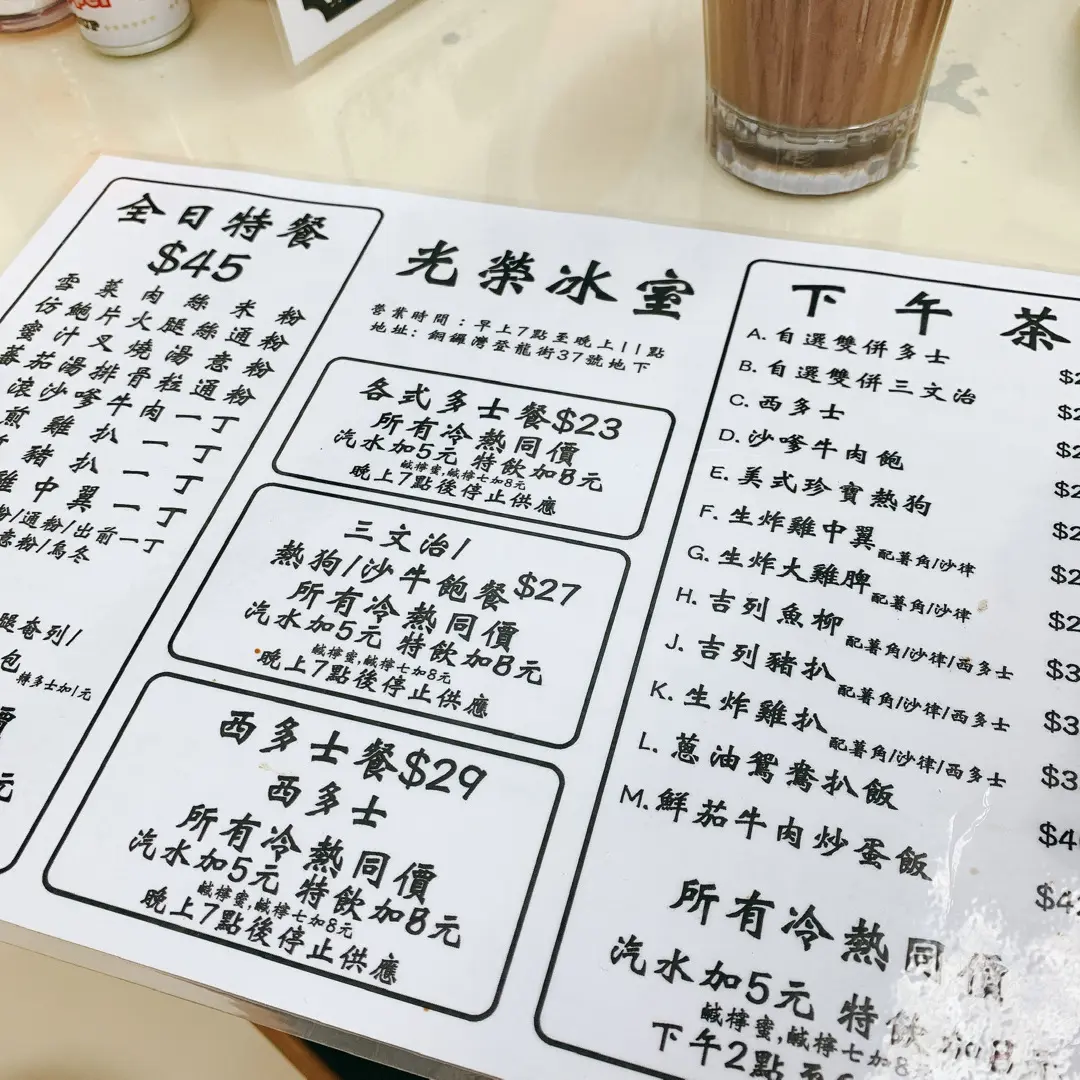 全日特餐
$45
雪菜肉絲米粉
仿鮑片火腿絲通粉
蜜汁叉燒湯意粉
蕃茄湯排骨粒通粉
滾沙嗲牛肉一丁
煎雞扒一丁
豬扒一丁
雞中翼一丁
粉/通粉/出前一丁
意粉/烏冬
腿奄列/
包 轉多士加1元
價
元
光榮冰室
營業時間：早上7點至晚上11點
地址：銅鑼灣登龍街37號地下
各式多士餐$23
所有冷熱同價
汽水加5元 特飲加8元
鹹檸蜜,鹹檸七加8元
晚上7點後停止供應
三文治/
熱狗/沙牛飽餐 $27
所有冷熱同價
汽水加5元 特飲加8元
鹹檸蜜,鹹檸七加8元
晚上7點後停止供應
西多士餐$29
西多士
所有冷熱同價
汽水加5元 特飲加8元
鹹檸蜜,鹹檸七加8元
晚上7點後停止供應
下午茶
A. 自選雙併多士
B. 自選雙併三文治
C. 西多士
D. 沙嗲牛肉飽
E. 美式珍寶熱狗
F. 生炸雞中翼 配薯角/沙律
G. 生炸大雞脾 配薯角/沙律
H. 吉列魚柳 配薯角/沙律/西多士
J. 吉列豬扒 配薯角/沙律/西多士
K. 生炸雞扒 配薯角/沙律/西多士
L. 蔥油鴛鴦扒飯
M. 鮮茄牛肉炒蛋飯
所有冷熱同價
汽水加5元 特飲加8
鹹檸蜜,鹹檸七加8
下午2點至